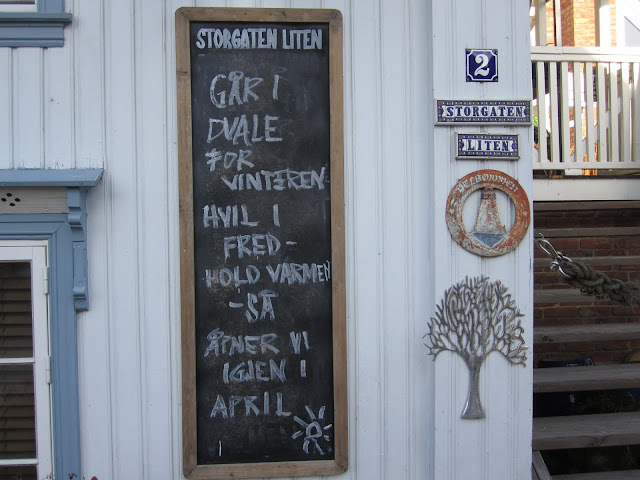 STORGATEN LITEN
GÅR I
DVALE
FOR
VINTEREN
HVIL I
FRED-
HOLD VARMEN
-SÅ
ÅPNER VI
IGJEN I
APRIL
2
STORGATEN
LITEN
VELKOMMEN